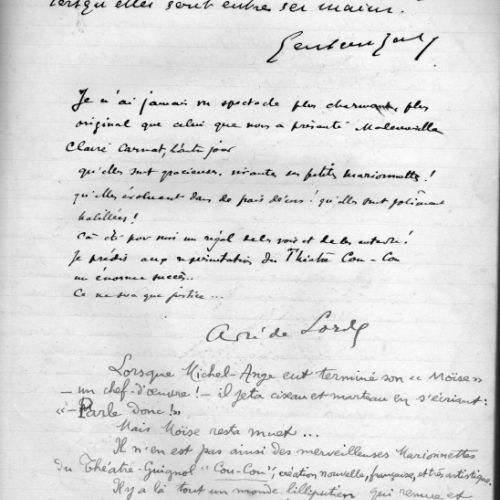 lorsqu'elles sont entre ses mains.
Je n'ai jamais vu spectacle plus charmant, plus
original que celui que nous a présenté Mademoiselle
Claire Carnat, l'autre jour
qu'elles sont gracieuses, vivantes ses petites marionnettes!
qu'elles évoluent dans de jolis décors! qu'elles sont joliment
habillées!
Ça été pour moi un régal de les voir et de les entendre!
Je prédis aux représentations du Théâtre Cou-Cou
un énorme succès..
Ce ne sera que justice...
André de Lorde
Lorsque Michel-Ange eut terminé son « Moïse »
– un chef-d'œuvre! – il jeta ciseau et marteau en s'écriant:
« Parle donc!»
Mais Moïse resta muet...
Il n'en est pas ainsi des merveilleuses Marionnettes
du Théâtre-Guignol "Cou-Cou", création nouvelle, française, et très artistique.
Il y a là tout un monde lilliputien qui remue et